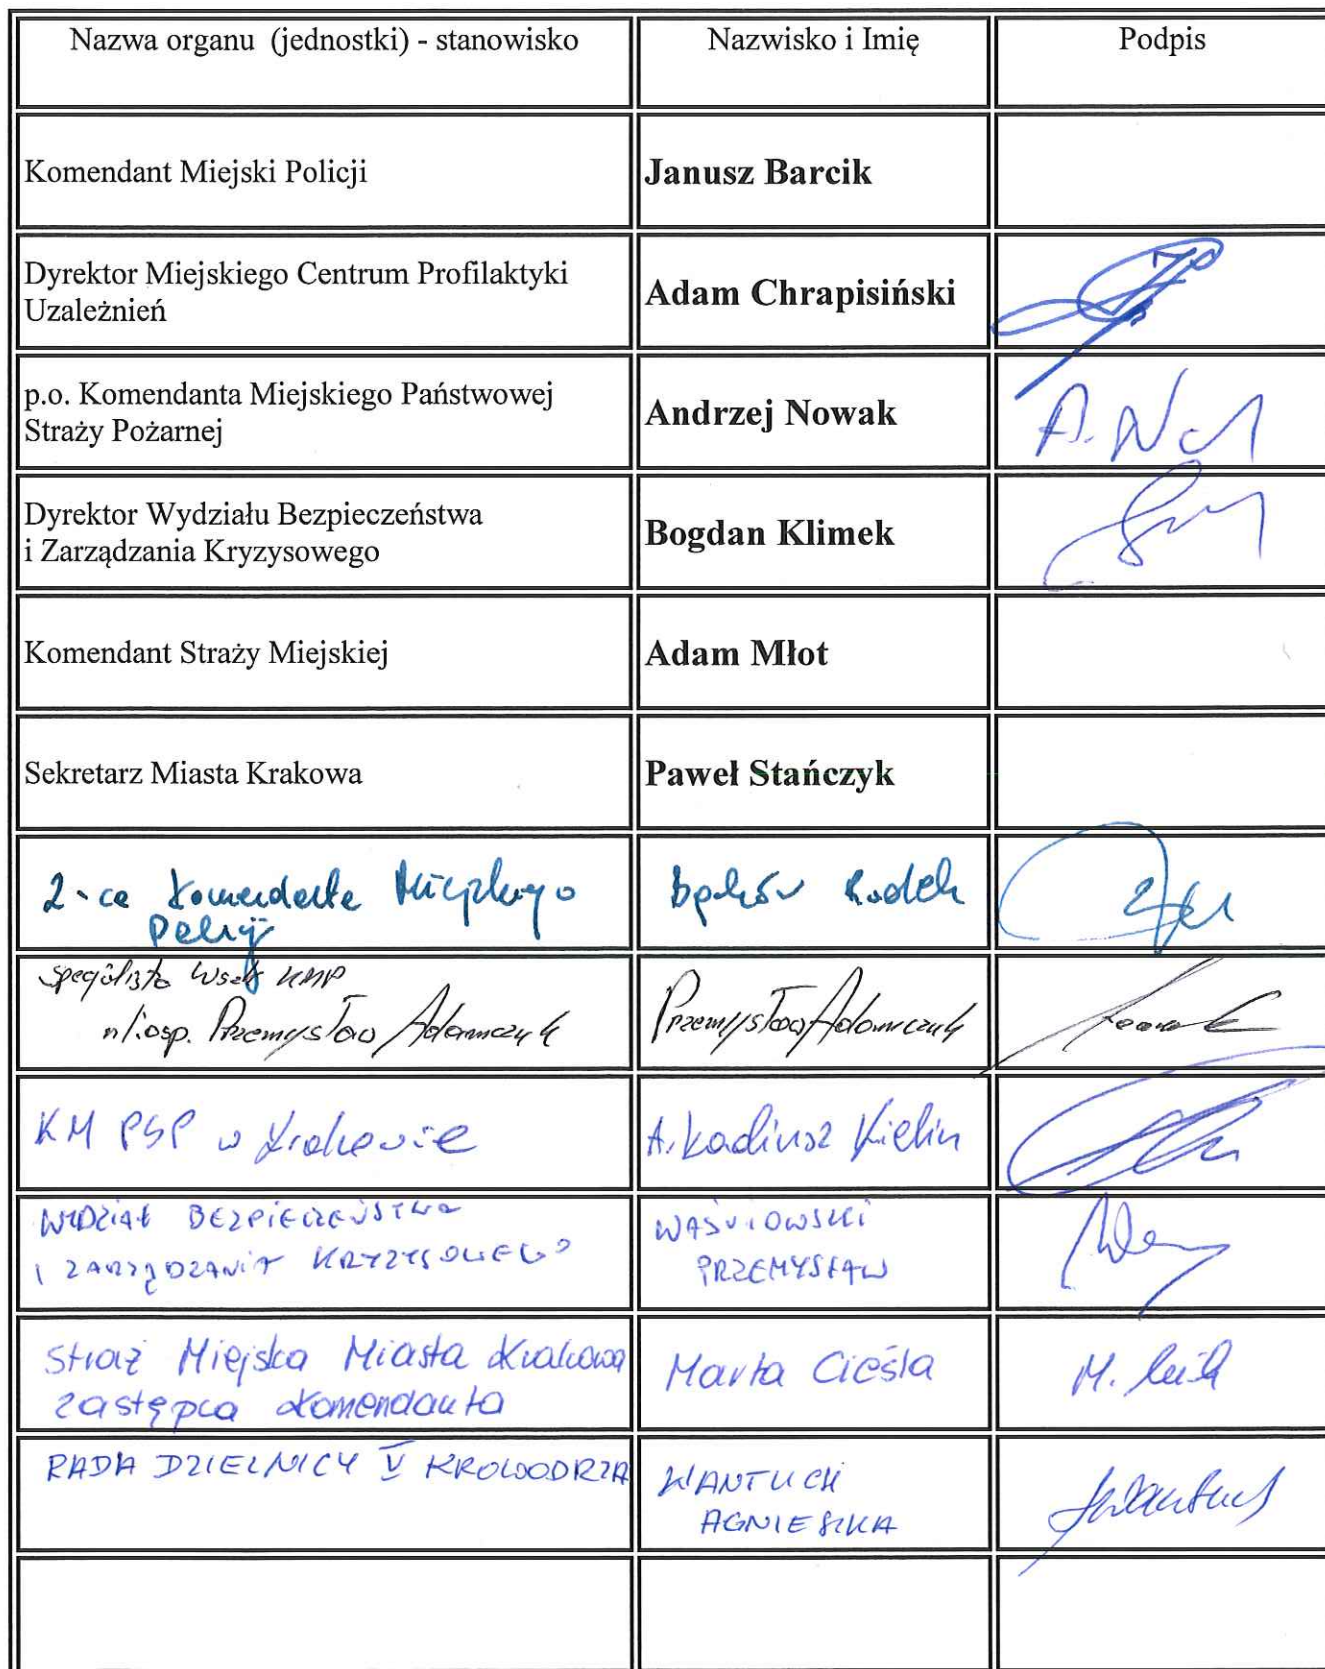 Nazwa organu (jednostki) - stanowisko
Nazwisko i Imię
Podpis
Komendant Miejski Policji
Janusz Barcik
Dyrektor Miejskiego Centrum Profilaktyki
Uzależnień
Adam Chrapisiński
p.o. Komendanta Miejskiego Państwowej
Straży Pożarnej
Andrzej Nowak
Dyrektor Wydziału Bezpieczeństwa
i Zarządzania Kryzysowego
Bogdan Klimek
Komendant Straży Miejskiej
Adam Młot
Sekretarz Miasta Krakowa
Paweł Stańczyk
Z-ca Komendanta Miejskiego
Policji
specjalista KMP
Przemysław Adamczyk
Przemysław Adamczyk
KM PSP w Krakowie
Arkadiusz Kielin
WYDZIAŁ BEZPIECZEŃSTWA
I ZARZĄDZANIA KRYZYSOWEGO
WAŚNIOWSKI
PRZEMYSŁAW
Straż Miejska Miasta Krakowa
zastępca Komendanta
Marta Cieśla
RADA DZIELNICY V KROWODRZA
WANTUCH
AGNIESZKA